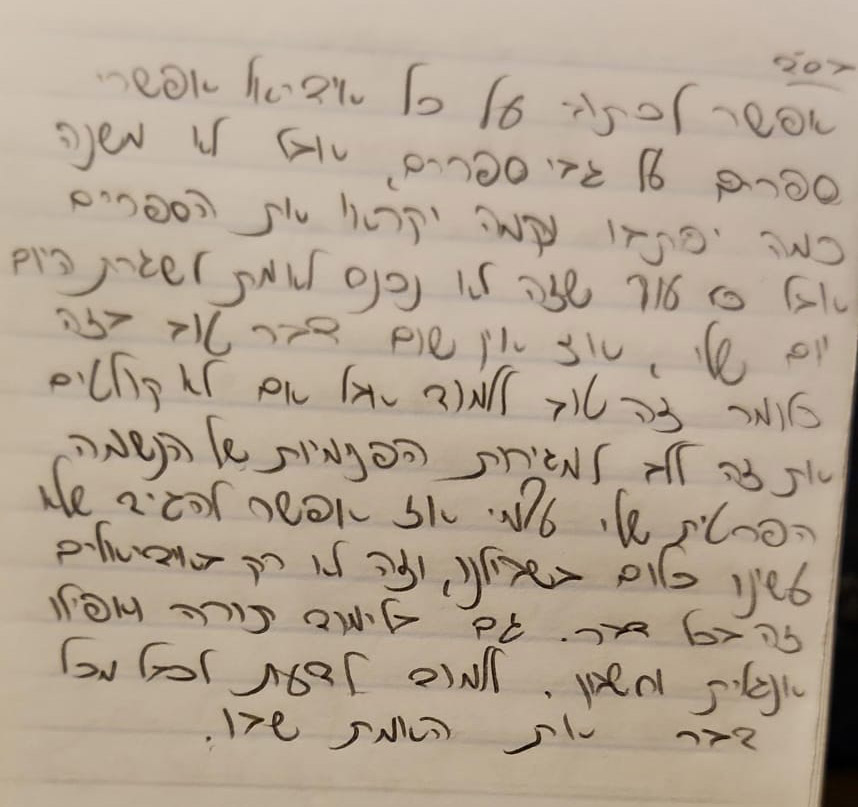 בס"ד
אפשר לכתוב על כל אידיאל אפשרי
ספרים על גבי ספרים, אבל לא משנה
כמה יכתבו וכמה יקראו את הספרים
אבל כל עוד שזה לא נכנס לאמת לשגרת היום
יום שלי, אז אין שום דבר טוב בזה
כלומר זה טוב ללמוד אבל אם לא קולטים
את זה למגירות הפנימיות של הנשמה
הפרטית שלי עצמי אז אפשר להגיד שלא
עשינו כלום בשבילנו, וזה לא רק באידיאלים
זה בכל דבר. גם בלימוד תורה ואפילו
אנגלית וחשבון. ללמוד לדעת לקבל מכל
דבר את האמת שבו.